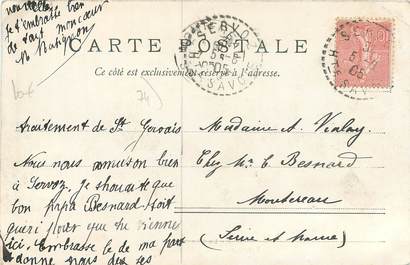 nouvelles
je t'embrasse bon
de tout mon cœur
M. Batignon
CARTE POSTALE
Ce côté est exclusivement réservé à l'adresse.
SERVOZ
Hte SAVOIE
SERVOZ
Hte SAVOIE
traitement de St Gervais
Nous nous amusons bien
à Servoz. Je souhaite que
bon papa Besnard soit
guéri pour que tu viennes
ici. Embrasse le de ma part
donne nous de ses
Madame A.
Chez Mr E. Besnard
Montereau
(Seine et Marne)